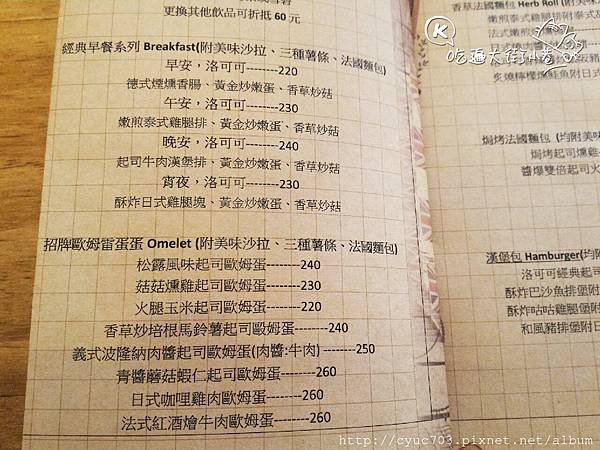 更換其他飲品可折抵 60 元
經典早餐系列 Breakfast(附美味沙拉、三種薯條、法國麵包)
早安，洛可可--------220
德式煙燻香腸、黃金炒嫩蛋、香草炒菇
午安，洛可可--------230
嫩煎泰式雞腿排、黃金炒嫩蛋、香草炒菇
晚安，洛可可--------240
起司牛肉漢堡排、黃金炒嫩蛋、香草炒菇
宵夜，洛可可--------230
酥炸日式雞腿塊、黃金炒嫩蛋、香草炒菇
招牌歐姆雷蛋蛋 Omelet (附美味沙拉、三種薯條、法國麵包)
松露風味起司歐姆蛋--------240
菇菇燻雞起司歐姆蛋--------230
火腿玉米起司歐姆蛋--------220
香草炒培根馬鈴薯起司歐姆蛋--------240
義式波隆納肉醬起司歐姆蛋(肉醬:牛肉) --------250
青醬蘑菇蝦仁起司歐姆蛋--------260
日式咖哩雞肉歐姆蛋--------260
法式紅酒燴牛肉歐姆蛋--------260
香草法國麵包 Herb Roll (附美味
嫩煎泰式雞腿排附泰式
法式嫩煎
K 吃遍大街小巷
焗烤法國麵包 (均附美味
焗烤起司燻雞
醬爆雙倍起司火
漢堡包 Hamburger(均附
洛可可經典起司
酥炸巴沙魚排堡附
酥炸咕咕雞腿堡附
和風豬排堡附日
http://cyuc703.pixnet.net/album